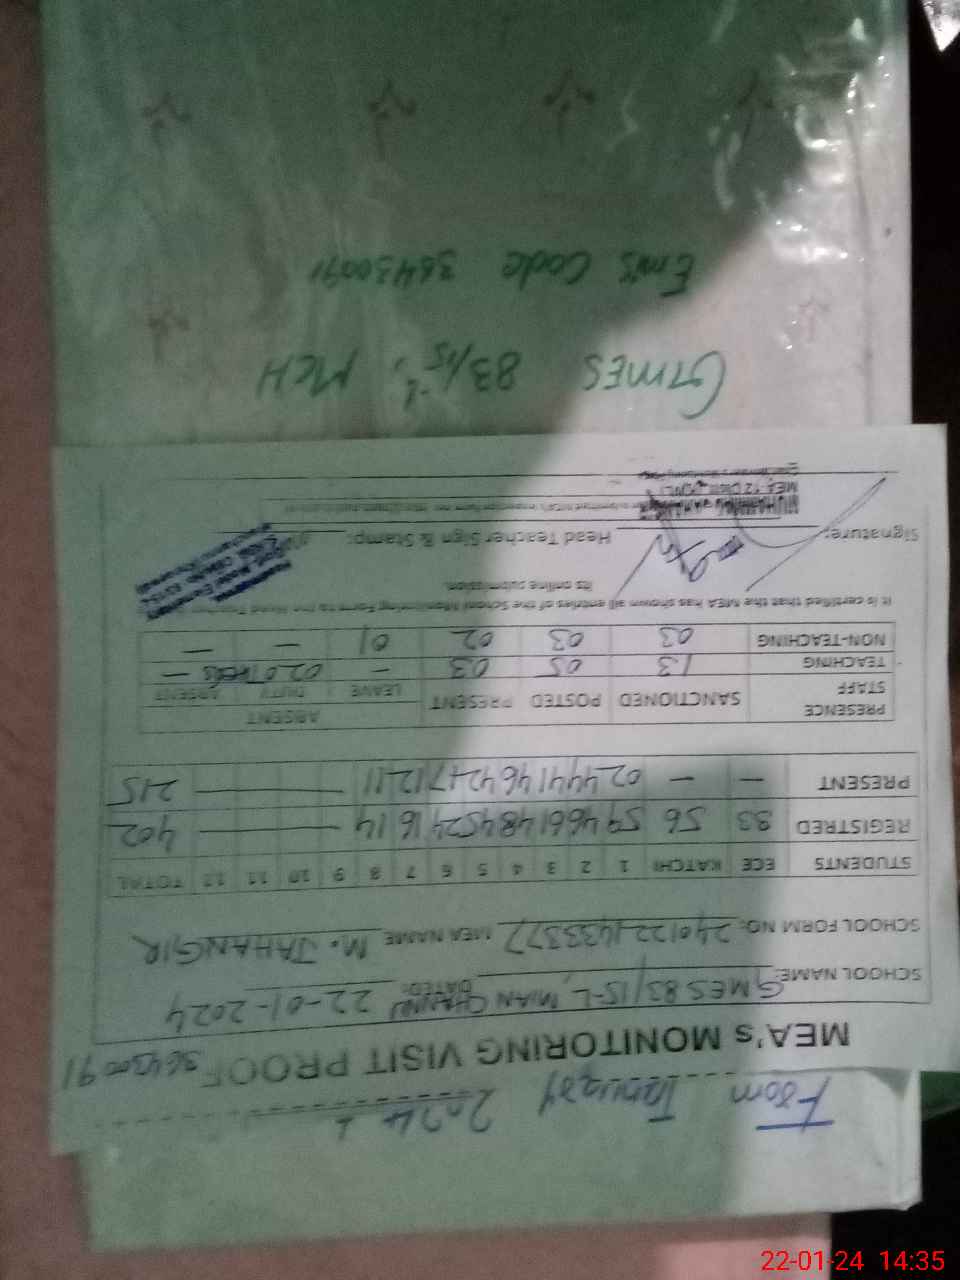 From January 2024
MEA's MONITORING VISIT PROOF 36430091
SCHOOL NAME: GMES 83/15-L, MIAN CHANNU DATED: 22-01-2024
SCHOOL FORM NO: 2401221433377 MEA NAME M. JAHANGIR
STUDENTS ECE KATCHI 1 2 3 4 5 6 7 8 9 10 11 12 TOTAL
REGISTRED 33 56 59 46 61 48 45 24 16 14 — 402
PRESENT — — 02 44 41 46 42 17 12 11 — 215
PRESENCE STAFF SANCTIONED POSTED PRESENT ABSENT
LEAVE DUTY ABSENT
TEACHING 13 05 03 — 02 OTHERS —
NON-TEACHING 03 03 02 01 — —
It is certified that the MEA has shown all entries of the School Monitoring Form to the Head Teacher
its online submission.
Signature: Head Teacher Sign & Stamp:
GMES 83/15-L, MCH
Emis Code 36430091
22-01-24 14:35